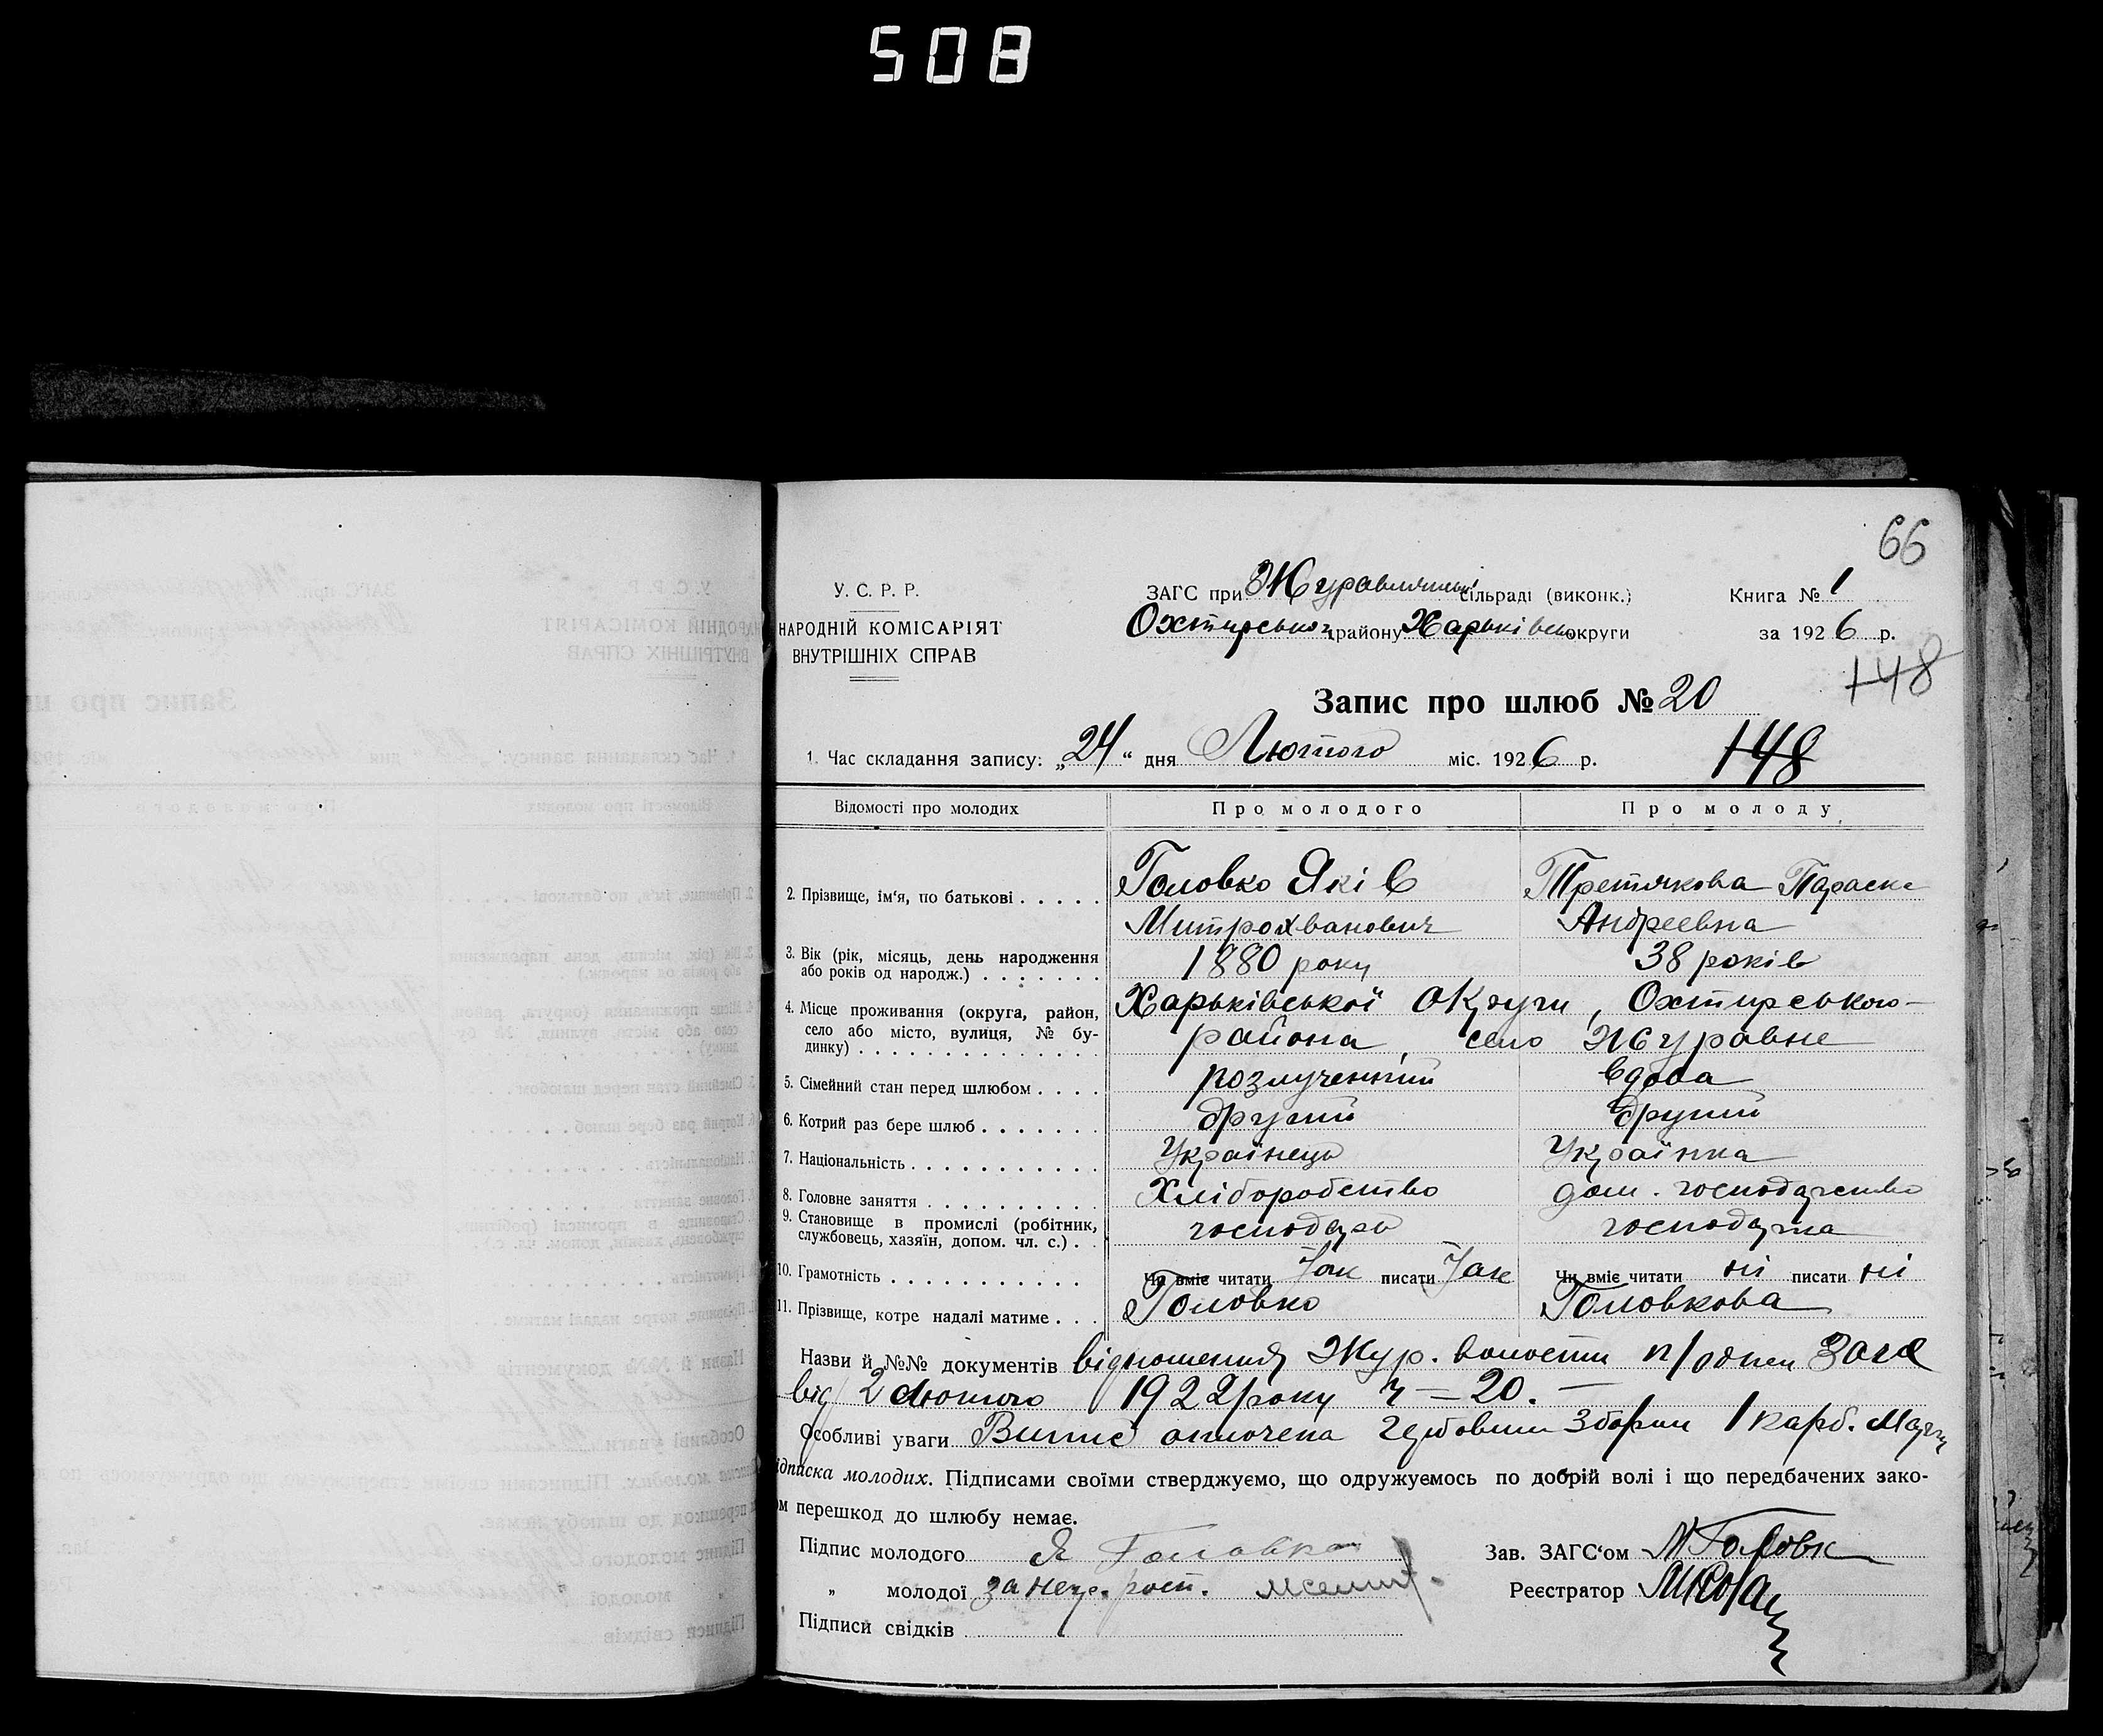 508
66
У. С. Р. Р.
НАРОДНІЙ КОМІСАРІЯТ
ВНУТРІШНІХ СПРАВ
ЗАГС при сільраді (виконк.)
Охтирської району Харьківської округи
Книга № 1
за 1926 р.
148
Запис про шлюб № 20
1. Час складання запису: „24“ дня Лютого міс. 1926 р.
148
Відомості про молодих Про молодого Про молоду
2. Прізвище, ім‘я, по батькові Головко Яків Третякова Параск
Митрохванович Андреевна
3. Вік (рік, місяць, день народження або років од народж.) 1880 року 38 років
4. Місце проживання (округа, район, село або місто, вулиця, № будинку) Харьківської Округи, Охтирського
района, село Журавне
5. Сімейний стан перед шлюбом розлученний вдова
6. Котрий раз бере шлюб другий другий
7. Національність Українець Українка
8. Головне заняття Хліборобство дом. господарство
9. Становище в промислі (робітник, службовець, хазяїн, допом. чл. с.) господарь
10. Грамотність Чи вміє читати Так писати Так Чи вміє читати ні писати ні
11. Прізвище, котре надалі матиме Головко Головкова
Назви й №№ документів відношення Жур. волости Загс
від 2 Лютого 1922 року ч = 20. —
Особливі уваги Випис оплочена Збором 1 карб.
ідписка молодих. Підписами своїми стверджуємо, що одружуємось по добрій волі і що передбачених зако-
м перешкод до шлюбу немає.
Підпис молодого Я Головко
„ молодої за негр.
Підписи свідків
Зав. ЗАГС‘ом Головк
Реєстратор